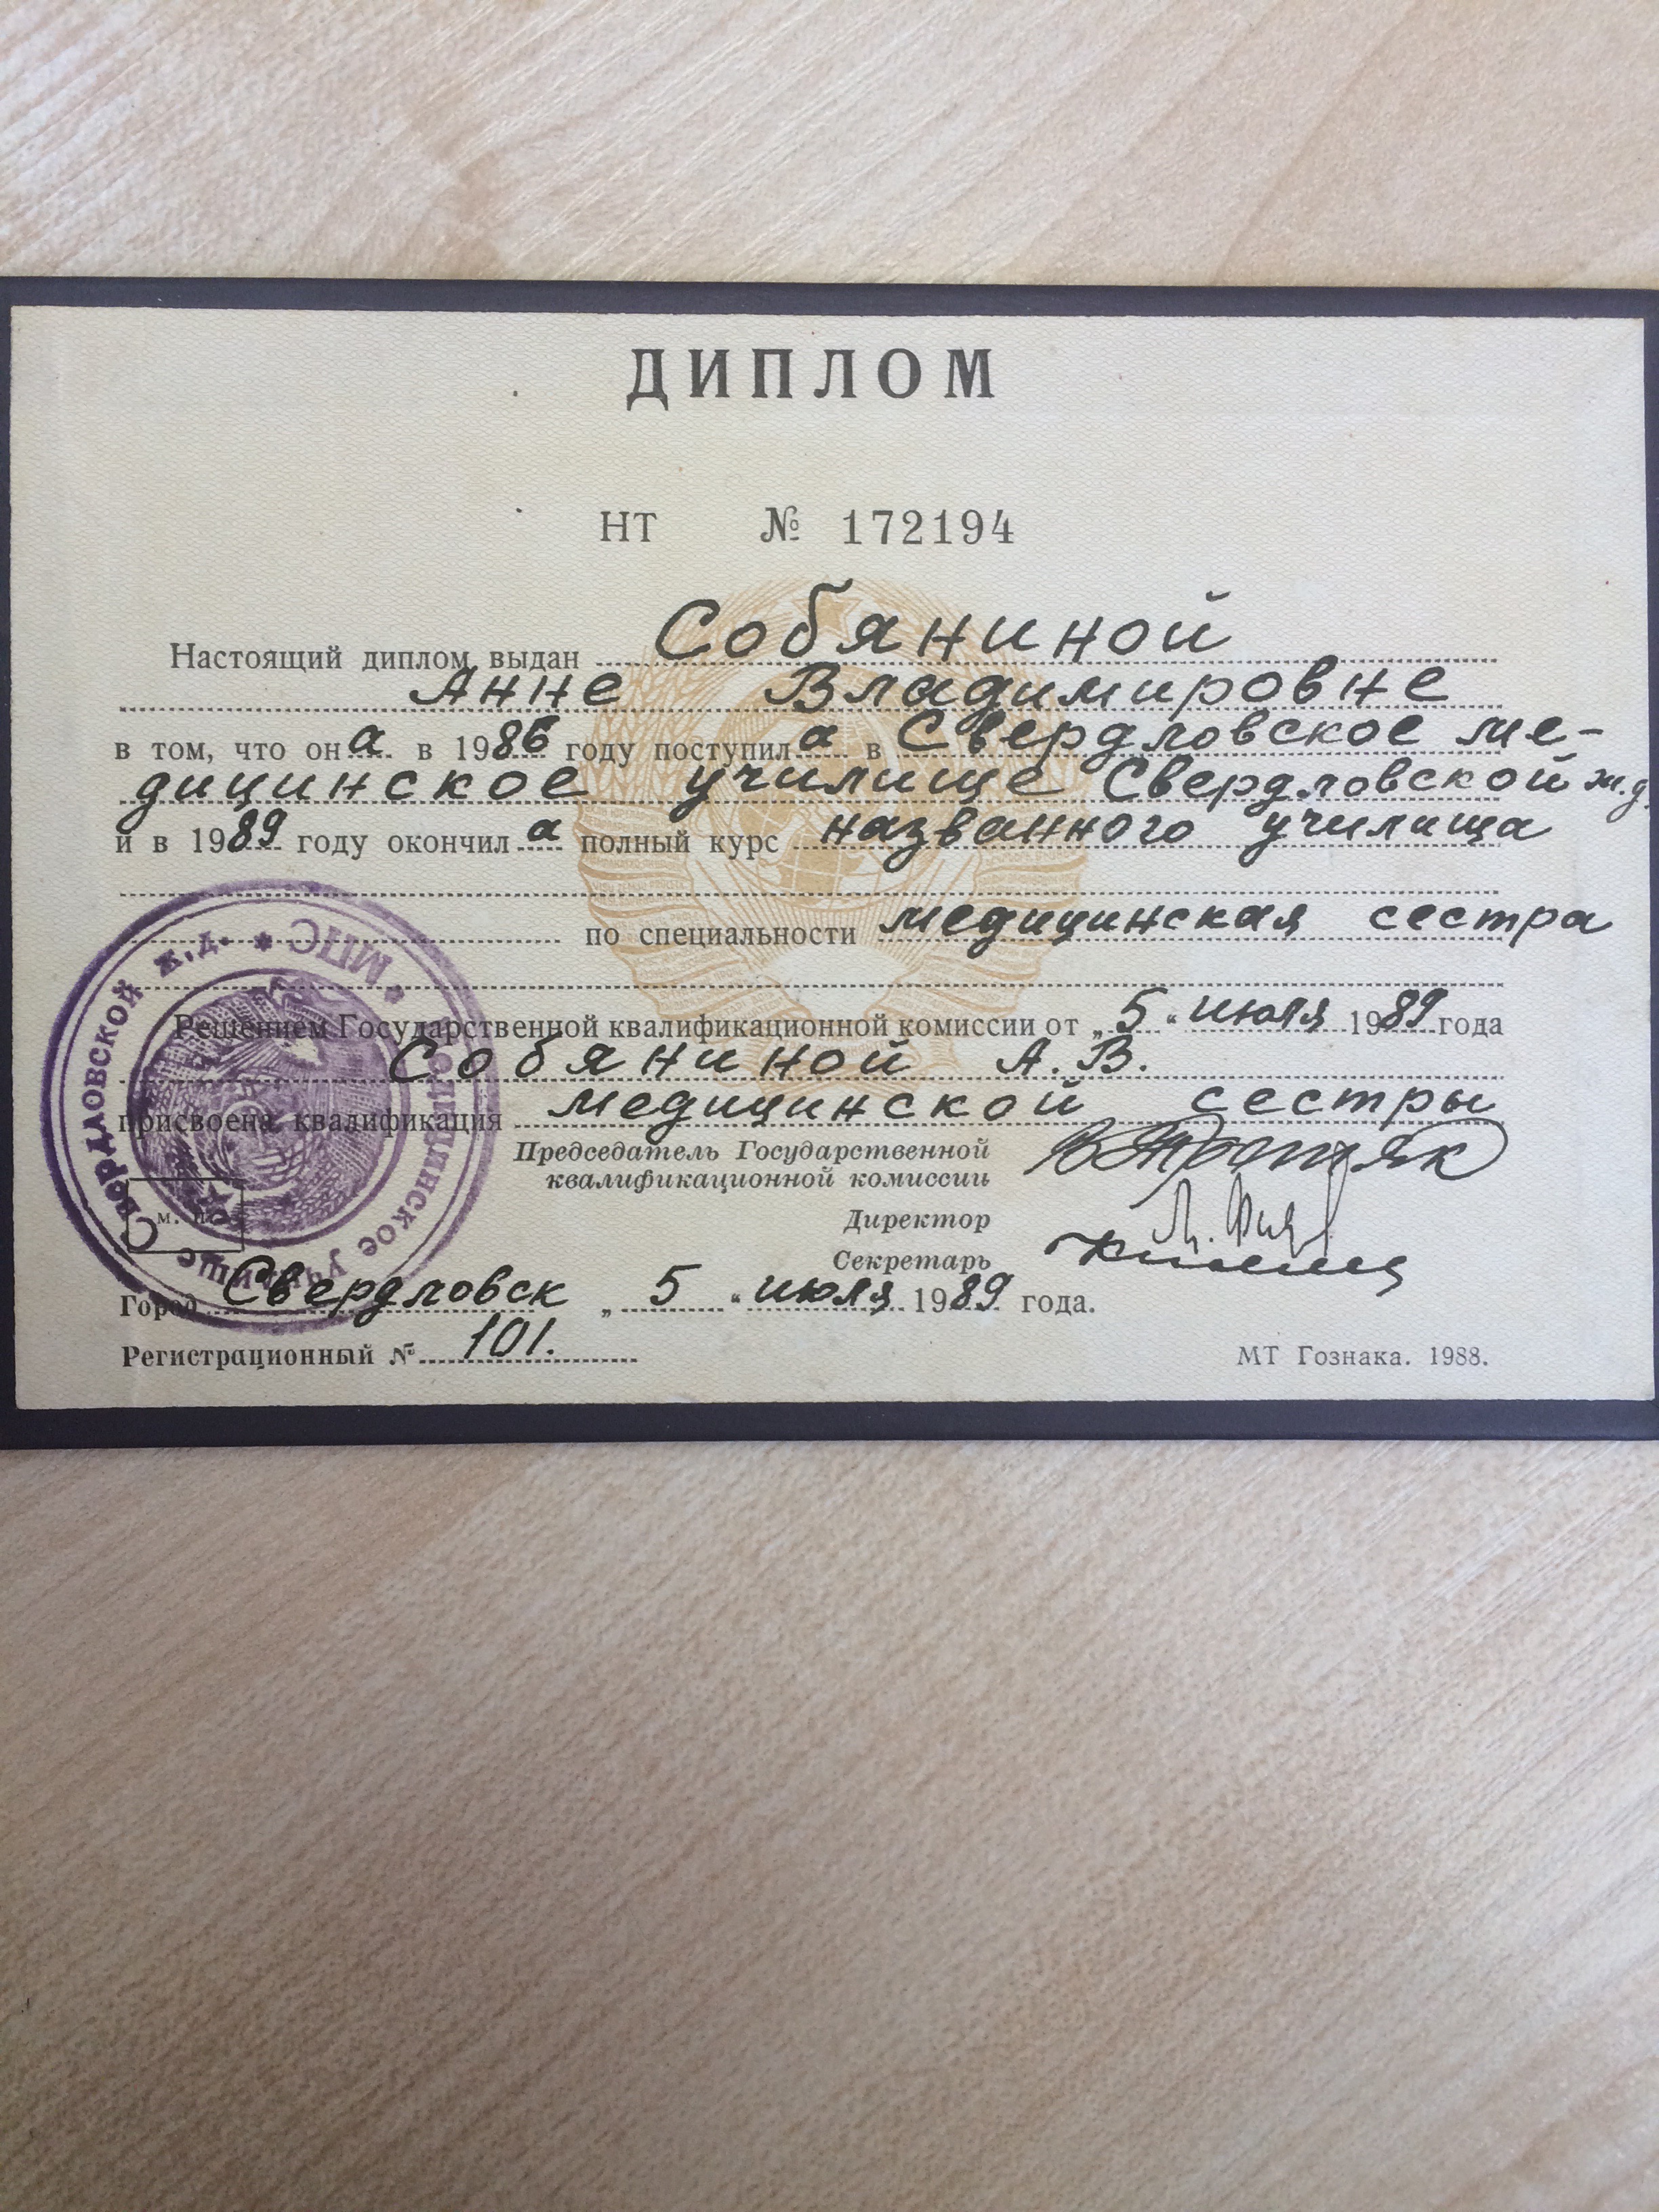 ДИПЛОМ
НТ № 172194
Настоящий диплом выдан Собяниной
Анне Владимировне
в том, что она в 1986 году поступила в Свердловское ме-
дицинское училище Свердловской ж.д.
и в 1989 году окончила полный курс названного училища
по специальности медицинская сестра
Решением Государственной квалификационной комиссии от „5“ июля 1989 года
Собяниной А.В.
присвоена квалификация медицинской сестры
Председатель Государственной
квалификационной комиссии
Директор
Секретарь
м. п.
Город Свердловск „5“ июля 1989 года.
Регистрационный № 101.
МТ Гознака. 1988.
Медицинское училище Свердловской ж.д. * МПС *